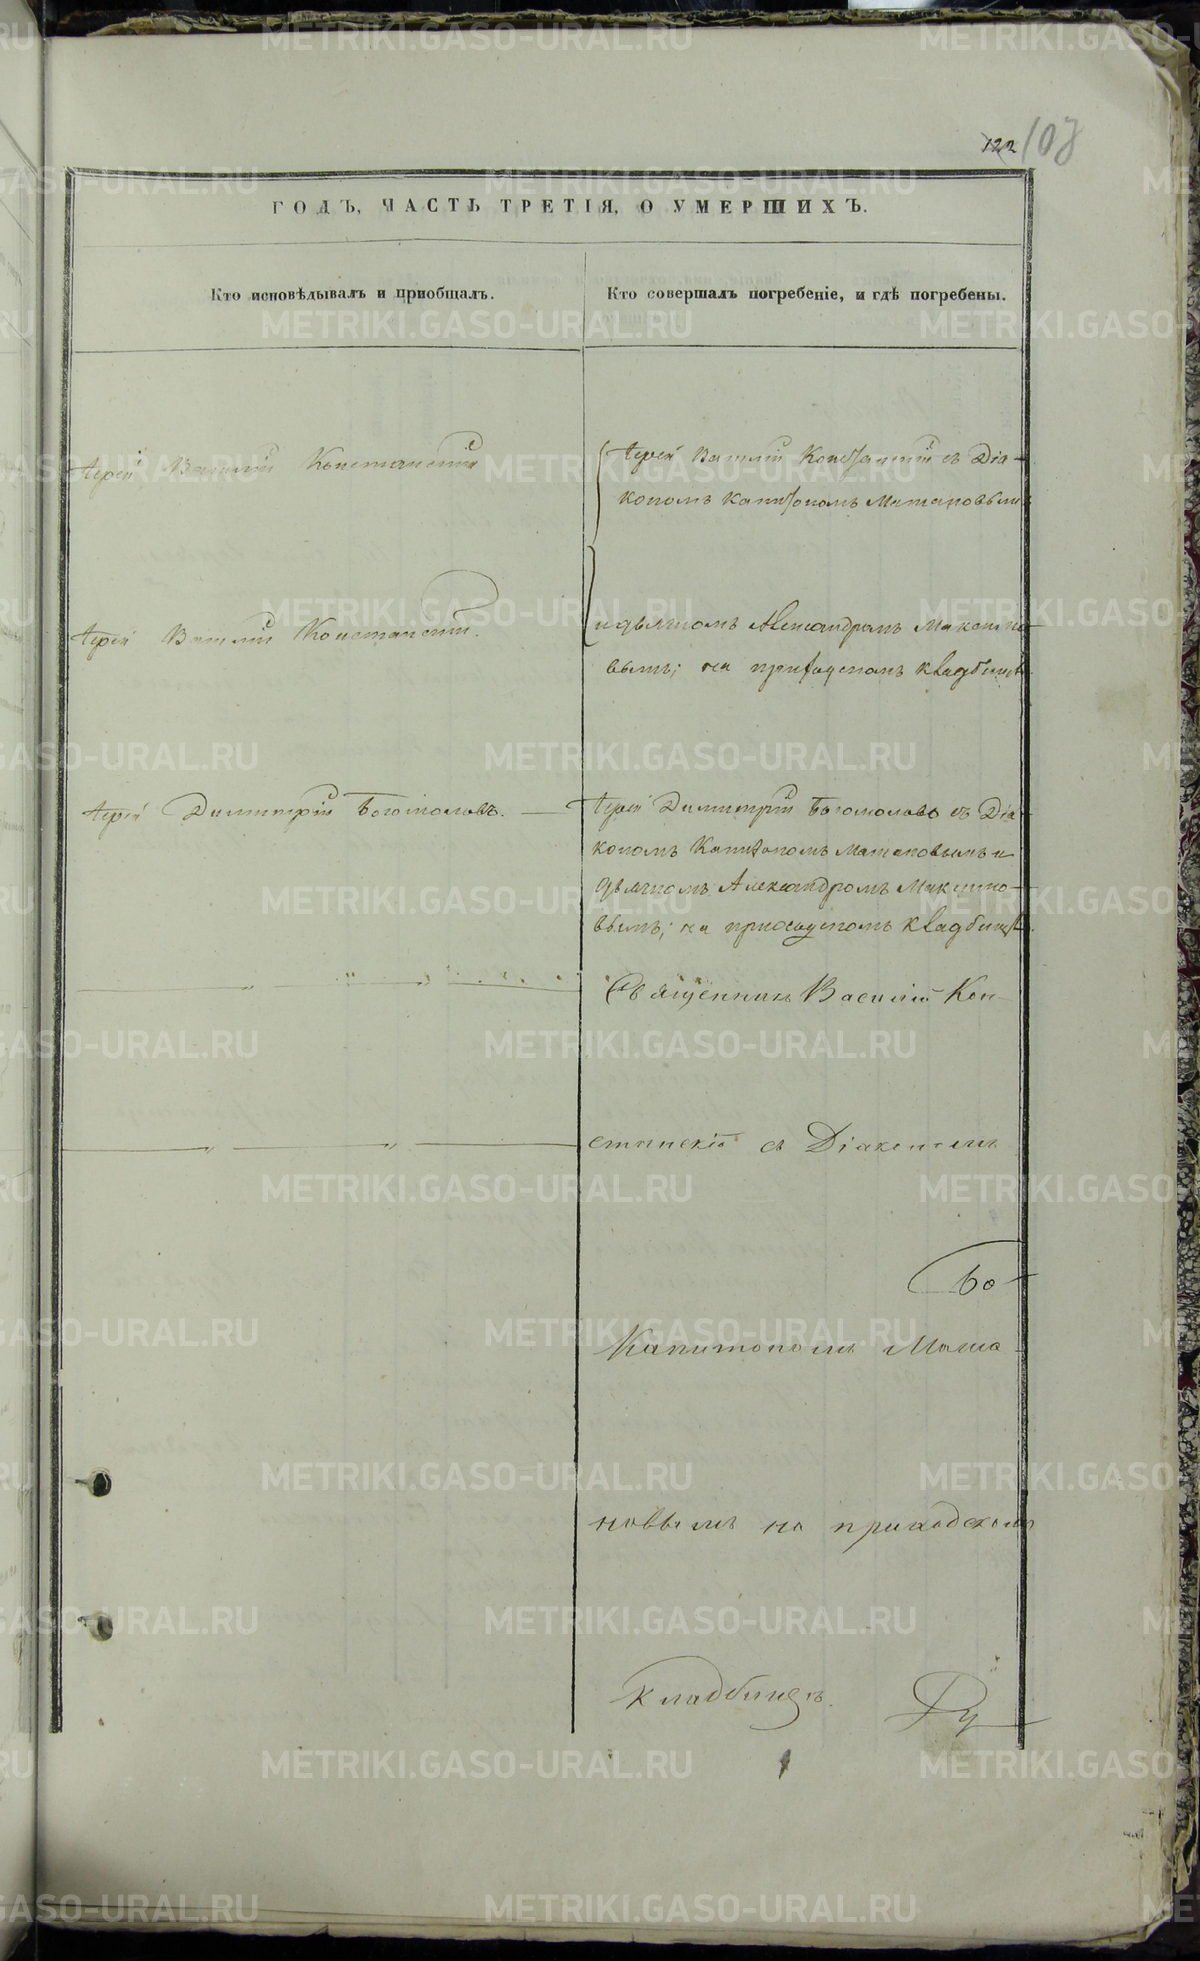 122 108
ГОДЪ, ЧАСТЬ ТРЕТІЯ, О УМЕРШИХЪ.
Кто исповѣдывалъ и пріобщалъ.
Кто совершалъ погребеніе, и гдѣ погребены.
Іерей Василій Констанскій
Іерей Василій Констанскій съ Діа-
кономъ Капитономъ Матановымъ
Іерей Василій Констанскій.
и дьячкомъ Александромъ Максимо-
вымъ; на приходскомъ кладбищѣ
Іерей Димитрій Богомоловъ.
Іерей Димитрій Богомоловъ съ Діа-
кономъ Капитономъ Матановымъ и
дьячкомъ Александромъ Максимо-
вымъ; на приходскомъ кладбищѣ.
Священникъ Василій Кон-
станскій съ Діакономъ
Бо-
Капитономъ Мата-
новымъ на приходскомъ
кладбищѣ.
Ру
METRIKI.GASO-URAL.RU